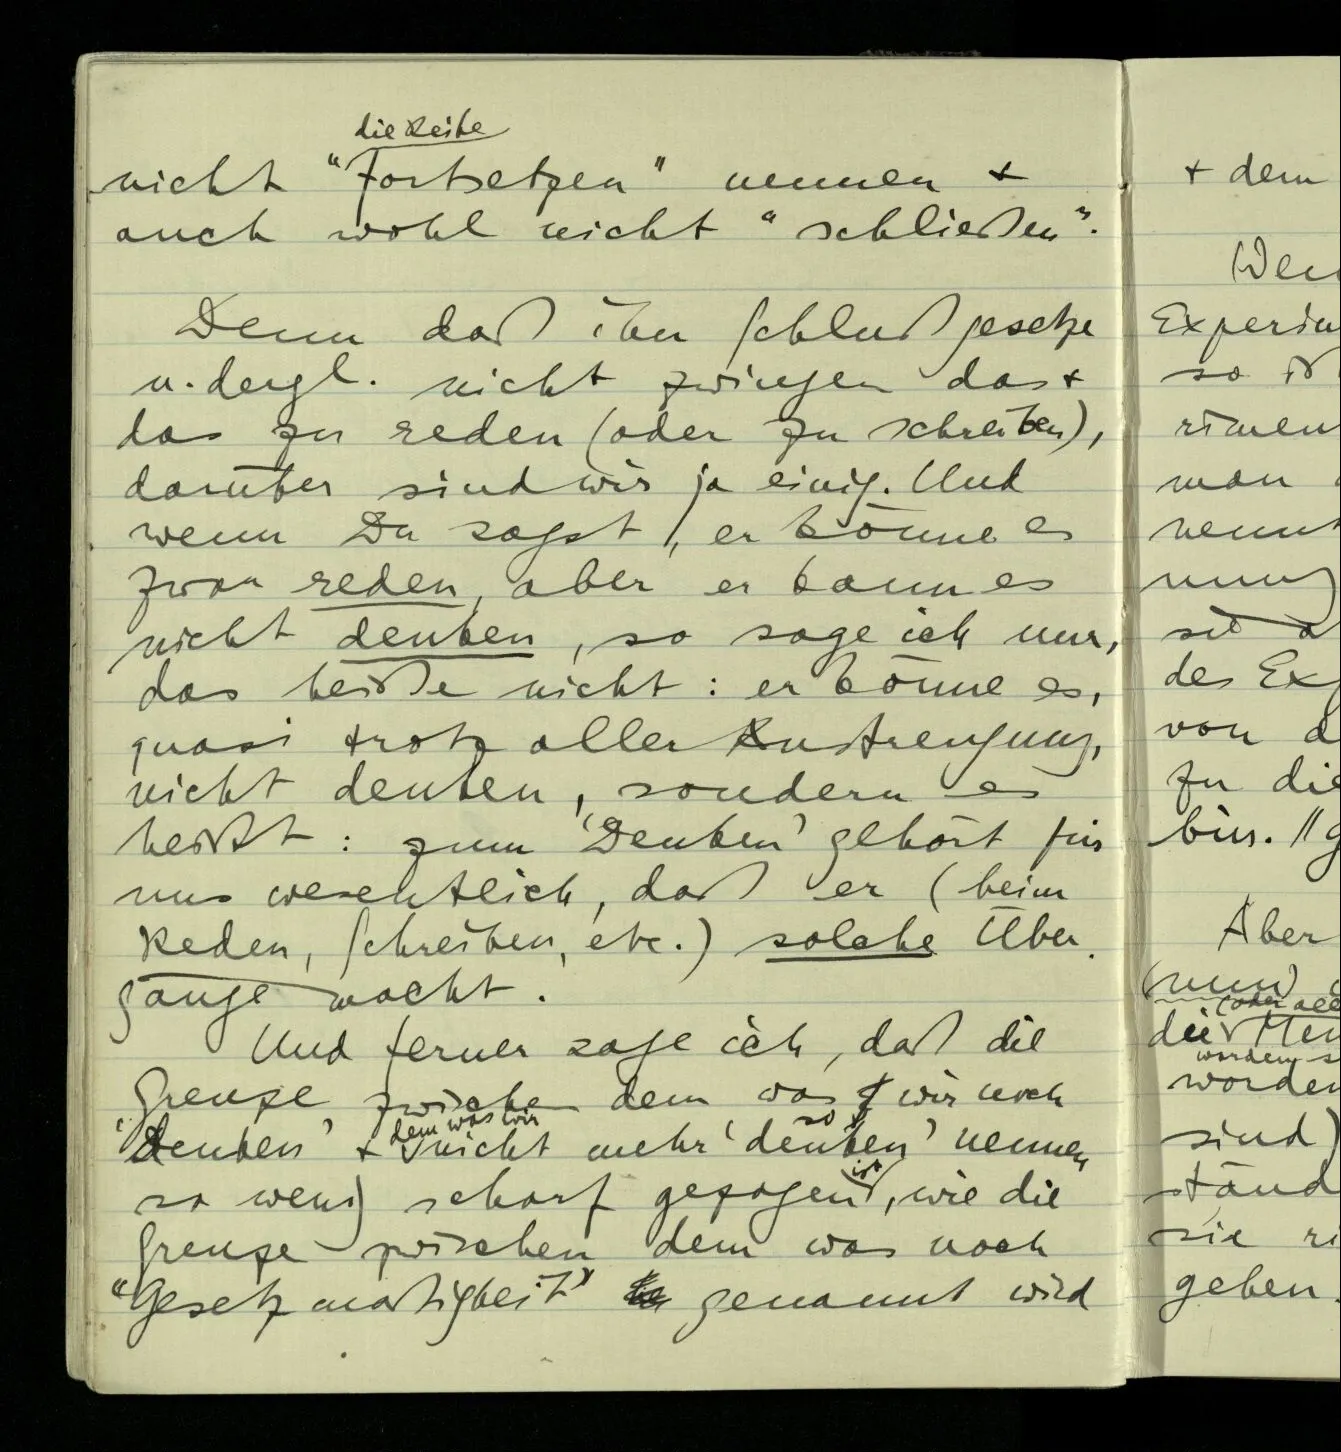 die Reihe
nicht "fortsetzen" nennen +
auch wohl nicht "schließen".
Denn daß ihn Schlußgesetze
u. dergl. nicht zwingen das +
das zu reden (oder zu schreiben),
darüber sind wir ja einig. Und
wenn Du sagst, er könne es
zwar reden, aber er kann es
nicht denken, so sage ich nur,
das heiße nicht: er könne es,
quasi trotz aller Anstrengung,
nicht denken, sondern es
heißt: zum 'Denken' gehört für
uns wesentlich, daß er (beim
Reden, Schreiben, etc.) solche Über-
gänge macht.
Und ferner sage ich, daß die
Grenze zwischen dem was wir noch
dem was wir so
'denken' + nicht mehr 'denken' nennen
ist
so wenig scharf gezogen, wie die
Grenze zwischen dem was noch
"Gesetzmäßigkeit" genannt wird
+ dem
(Wen
Experim
so ist
rimen
man
nennt
nung
des Ex
von d
zu die
bin. //g
Aber
(nun)
(oder all
die Men
worden s
worden
sind)
ständ
sie
geben.